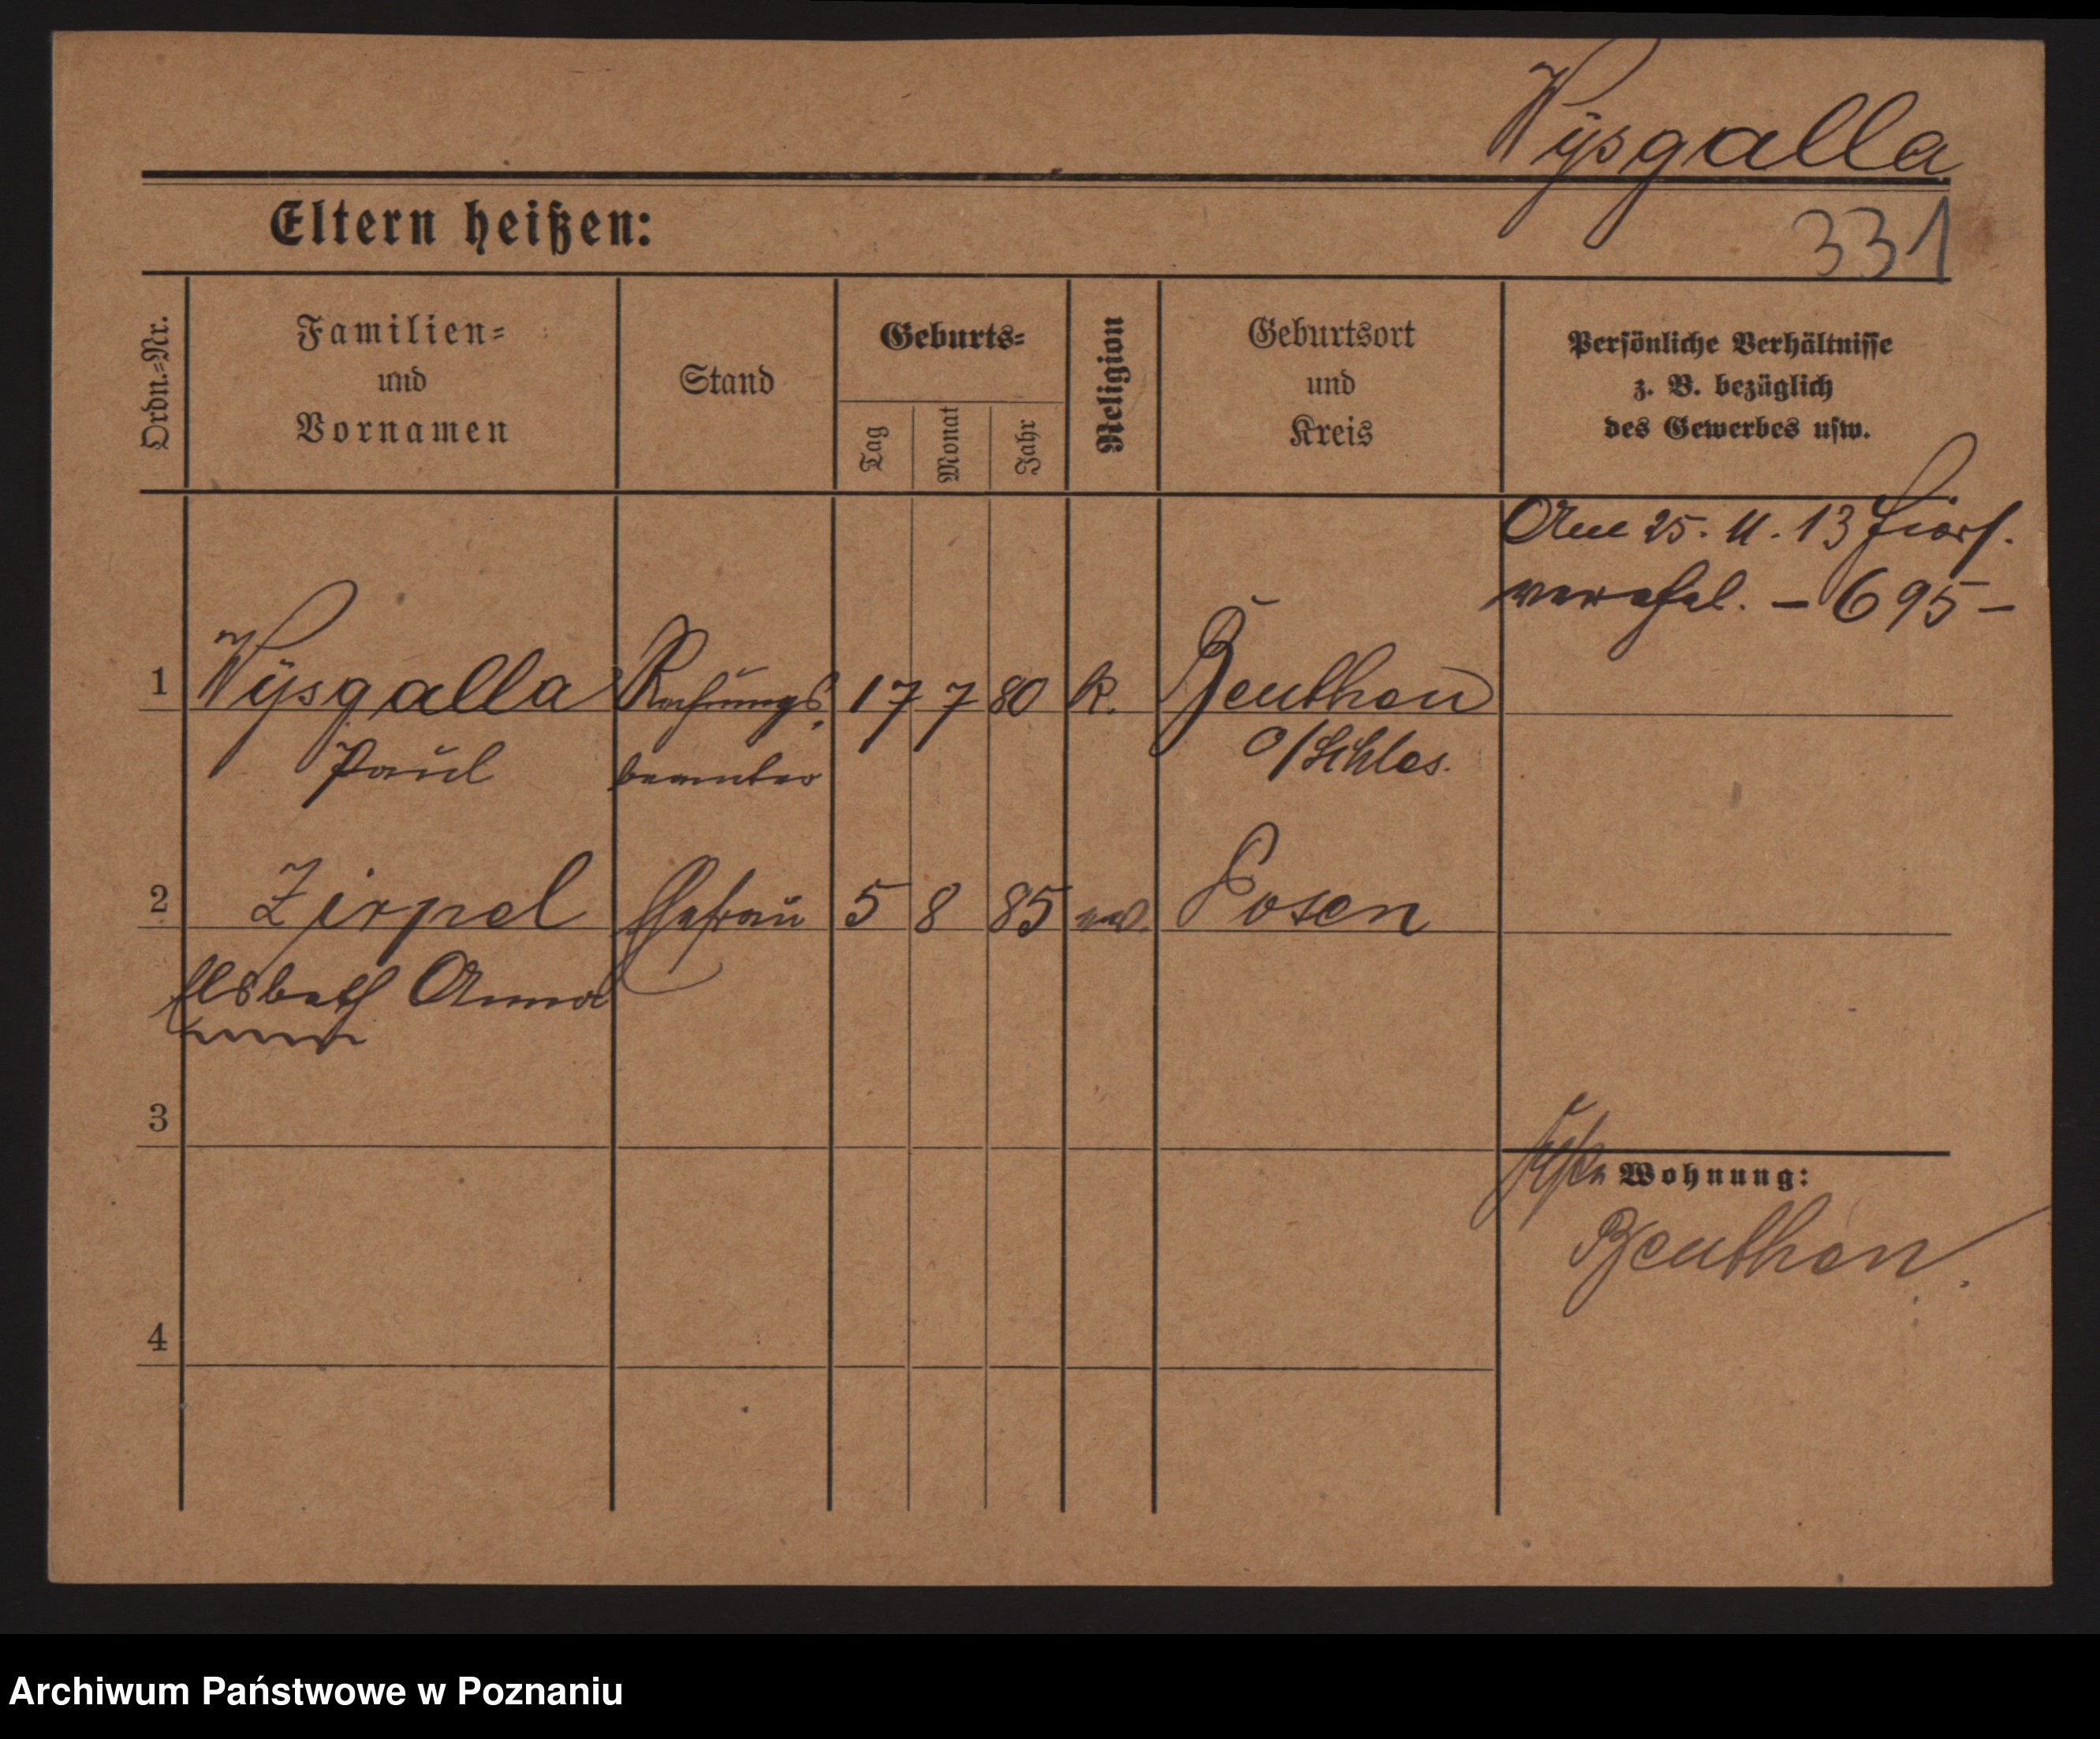 Wysgalla
331
Eltern heißen:
Ordn.=Nr.
Familien=
und
Vornamen
Stand
Geburts=
Tag
Monat
Jahr
Religion
Geburtsort
und
Kreis
Persönliche Verhältnisse
z. B. bezüglich
des Gewerbes usw.
Am 25. 11. 13 hier
verehel. – 695 –
1 Wysgalla Rechnungs 17 7 80 k. Beuthen
Paul beamter O/Schles.
2 Zirpel Ehefrau 5 8 85 ev. Posen
Elsbeth Anna
3
Wohnung:
Beuthen.
4
Archiwum Państwowe w Poznaniu